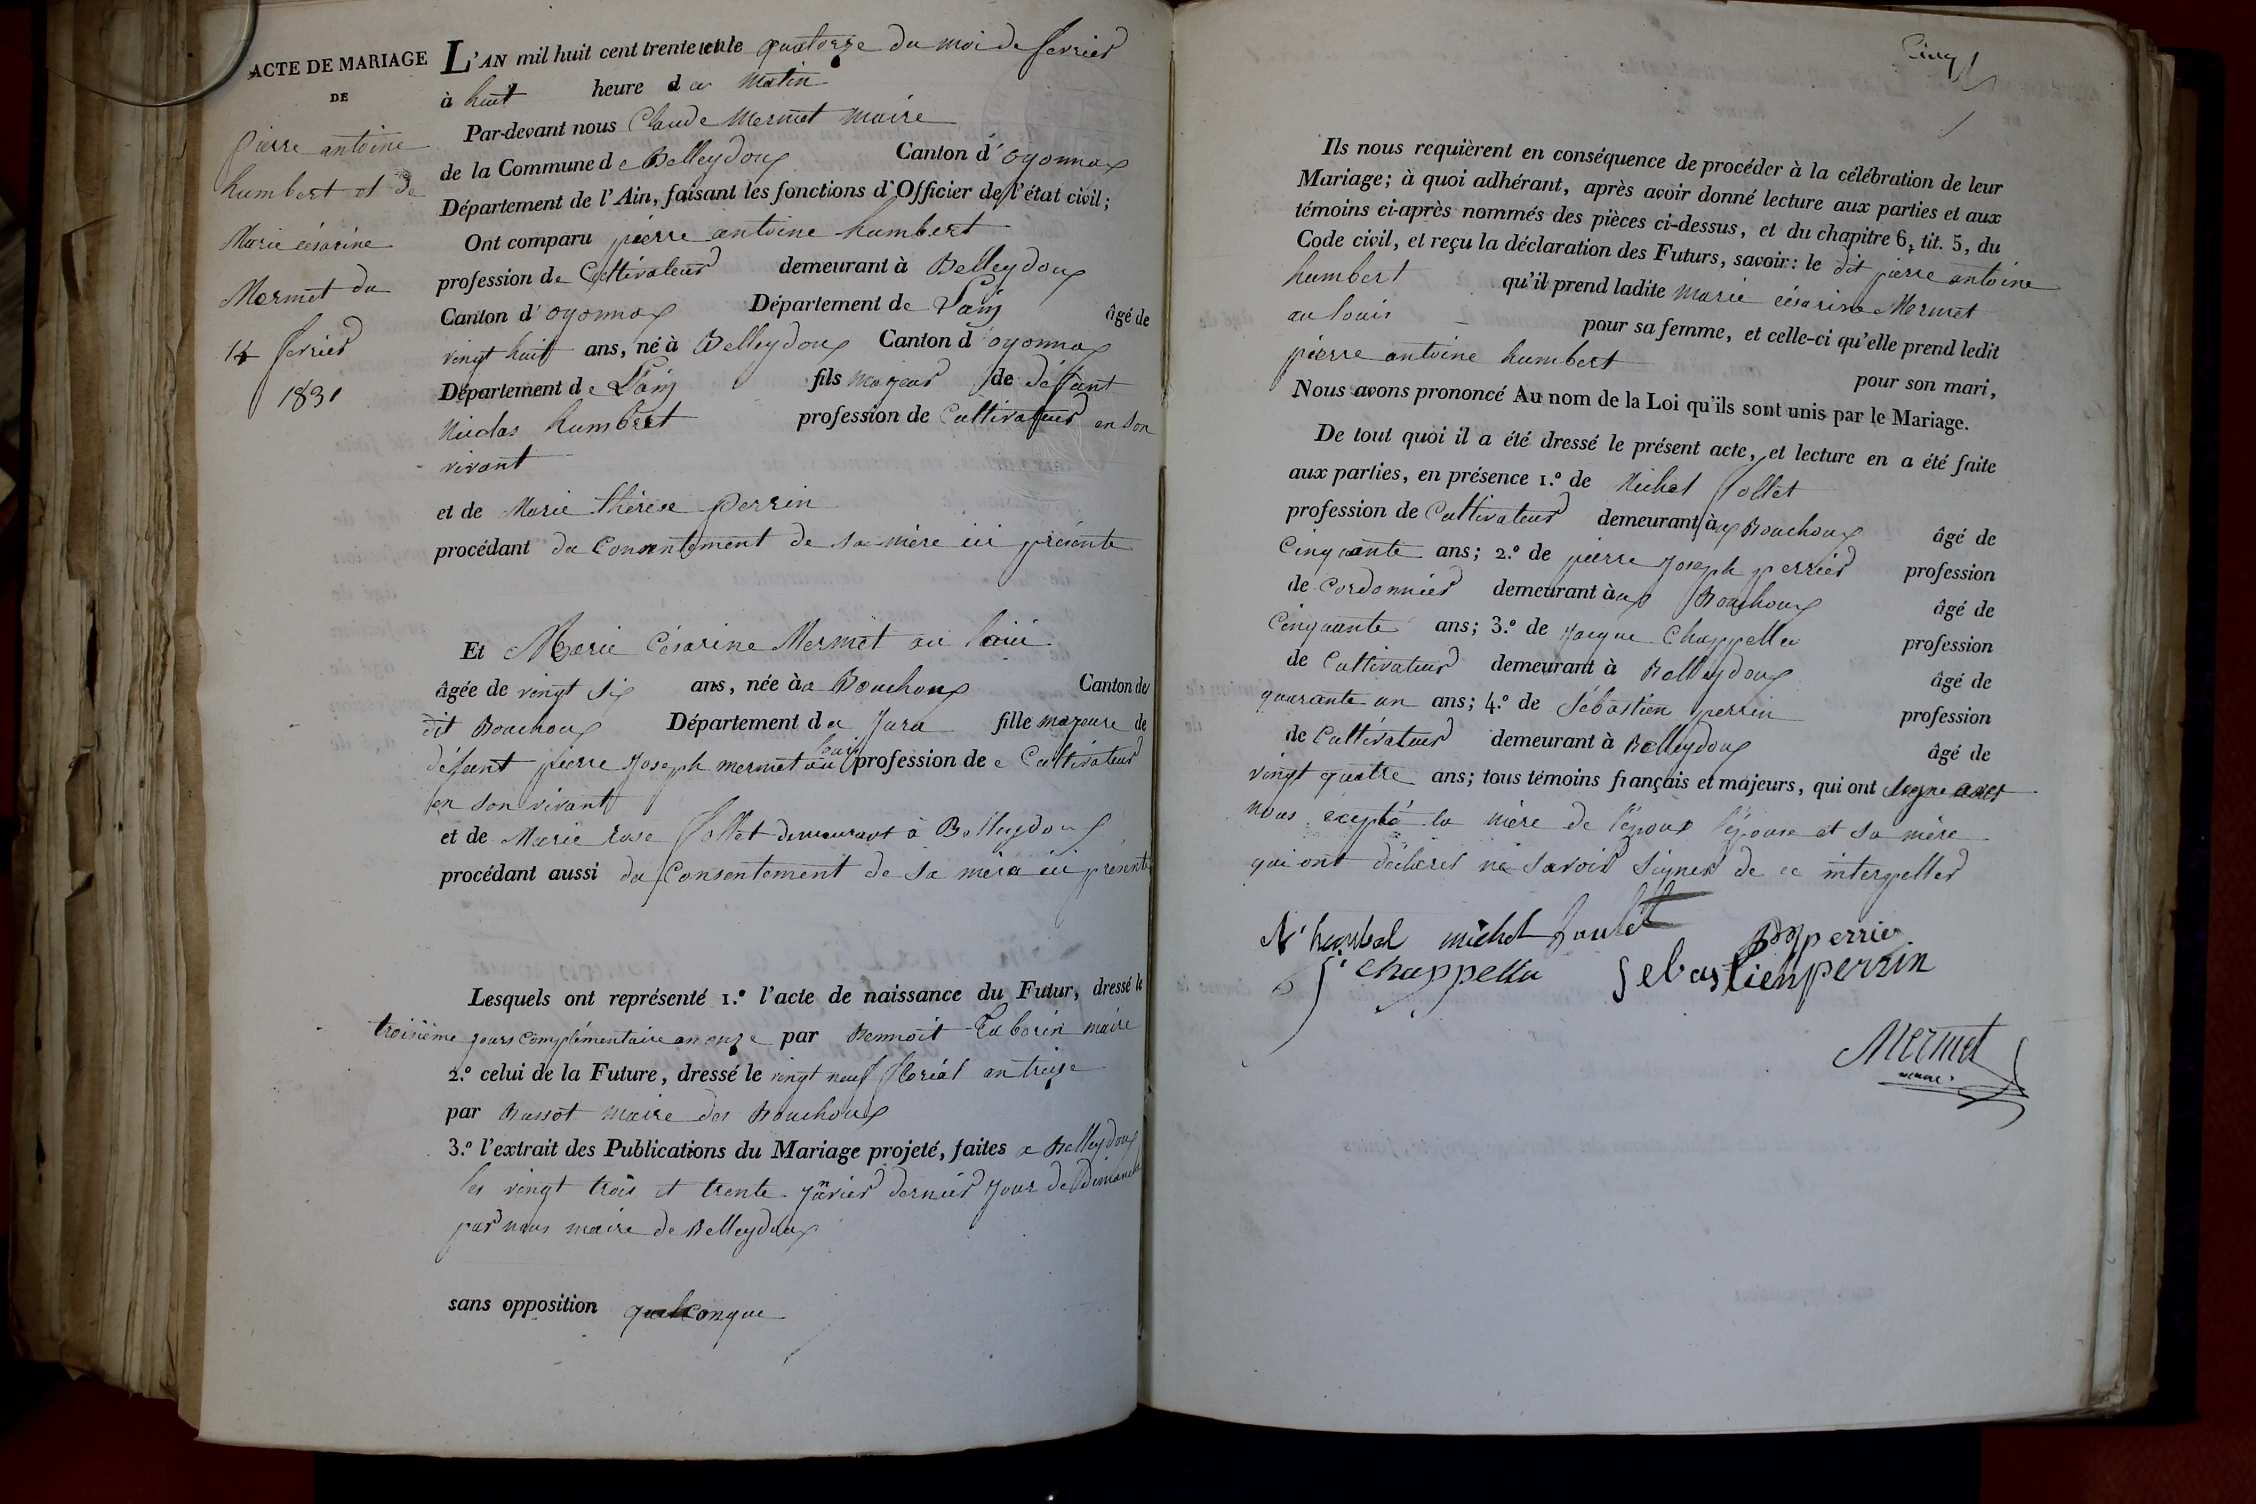 ACTE DE MARIAGE
DE
pierre antoine
humbert et de
Marie césarine
Mermet du
14 fevrier
1831
L'AN mil huit cent trente et le quatorze du moi de fevrier
à huit heure du matin
Par-devant nous Claude Mermet maire
de la Commune de Belleydoux Canton d'oyonnax
Département de l'Ain, faisant les fonctions d'Officier de l'état civil;
Ont comparu pierre antoine humbert
profession de Cultivateur demeurant à Belleydoux
Canton d'oyonnax Département de L'ain âgé de
vingt huit ans, né à Belleydoux Canton d'oyonnax
Département de L'ain fils majeur de défunt
Nicolas humbert profession de Cultivateur en son
vivant
et de Marie thérèse perrin
procédant du Consentement de sa mère ici présente
Et Marie Césarine Mermet au loui
âgée de vingt six ans, née à Bouchoux Canton de
dit Bouchoux Département du Jura fille majeure de
défunt pierre Joseph mermet au loui profession de Cultivateur
en son vivant
et de Marie rose follet demeurant à Belleydoux
procédant aussi du Consentement de sa mère ici présente
Lesquels ont représenté 1.º l'acte de naissance du Futur, dressé le
troisième jours complémentaire an onze par Bennoit Taborin maire
2.º celui de la Future, dressé le vingt neuf floréal an treize
par Bussot maire des Bouchoux
3.º l'extrait des Publications du Mariage projeté, faites a Belleydoux
les vingt trois et trente janvier dernier jour de Dimanche
par nous maire de Belleydoux
sans opposition quelconque
Cinq
Ils nous requièrent en conséquence de procéder à la célébration de leur
Mariage; à quoi adhérant, après avoir donné lecture aux parties et aux
témoins ci-après nommés des pièces ci-dessus, et du chapitre 6, tit. 5, du
Code civil, et reçu la déclaration des Futurs, savoir: le dit pierre antoine
humbert qu'il prend ladite marie césarine Mermet
au louis pour sa femme, et celle-ci qu'elle prend ledit
pierre antoine humbert pour son mari,
Nous avons prononcé Au nom de la Loi qu'ils sont unis par le Mariage.
De tout quoi il a été dressé le présent acte, et lecture en a été faite
aux parties, en présence 1.º de Michel follet
profession de Cultivateur demeurant aux Bouchoux âgé de
Cinquante ans; 2.º de pierre Joseph perrier profession
de Cordonnier demeurant aux Bouchoux âgé de
Cinquante ans; 3.º de Jacque Chappellu profession
de Cultivateur demeurant à Belleydoux âgé de
quarante un ans; 4.º de Sébastien perrin profession
de Cultivateur demeurant à Belleydoux âgé de
vingt quatre ans; tous témoins français et majeurs, qui ont signé avec
nous excepté la mère de l'époux l'épouse et sa mère
qui ont déclarer ne savoir signer de ce interpeller
humbel michel foulet perrier
chappellu Sebastien perrin
Mermet
maire